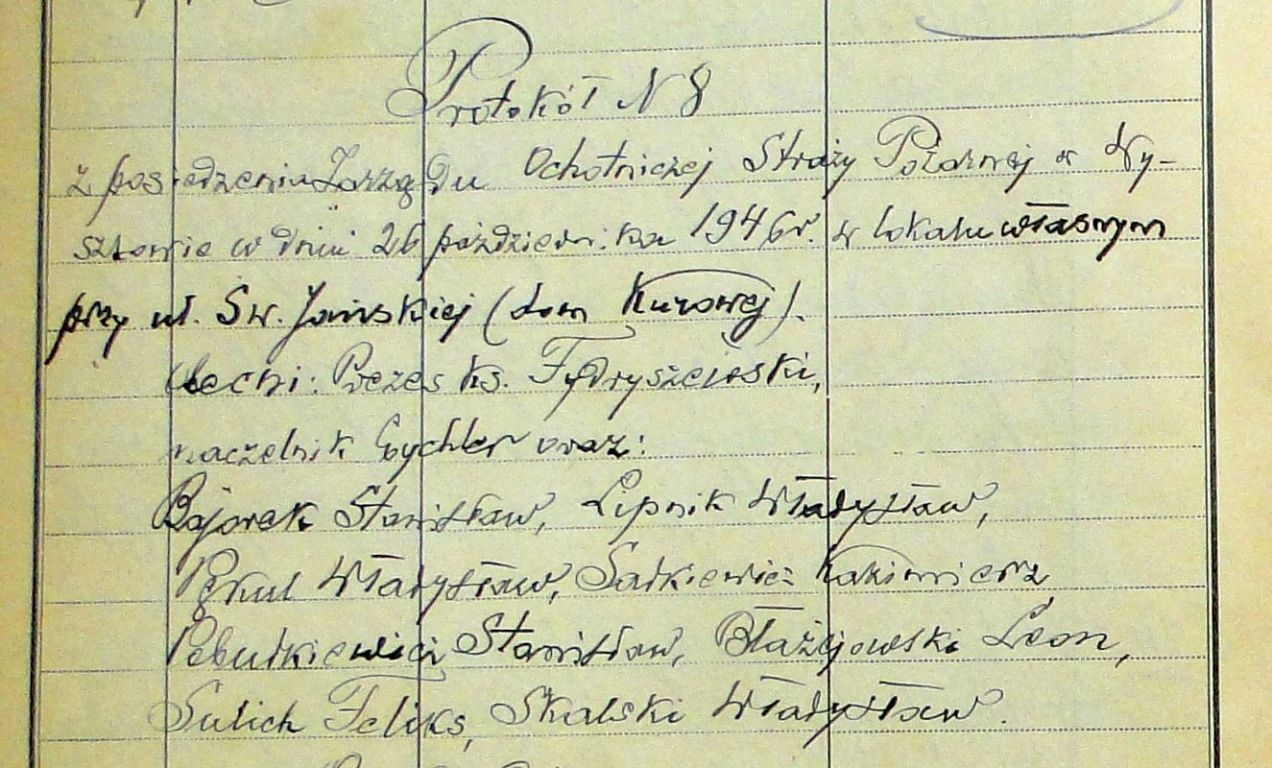 Protokół N 8
z posiedzenia Zarządu Ochotniczej Straży Pożarnej w Wy-
sztowie w dniu 26 października 1946 r. w lokalu własnym
przy ul. Św. Jańskiej (dom Kurowej).
Obecni: Prezes ks. Fydryszewski,
naczelnik Eychler oraz:
Bajorek Stanisław, Lipnik Władysław,
Pękul Władysław, Sadkiewicz Kazimierz
Pobudkiewicz Stanisław, Błażejowski Leon,
Sulich Feliks, Skalski Władysław.